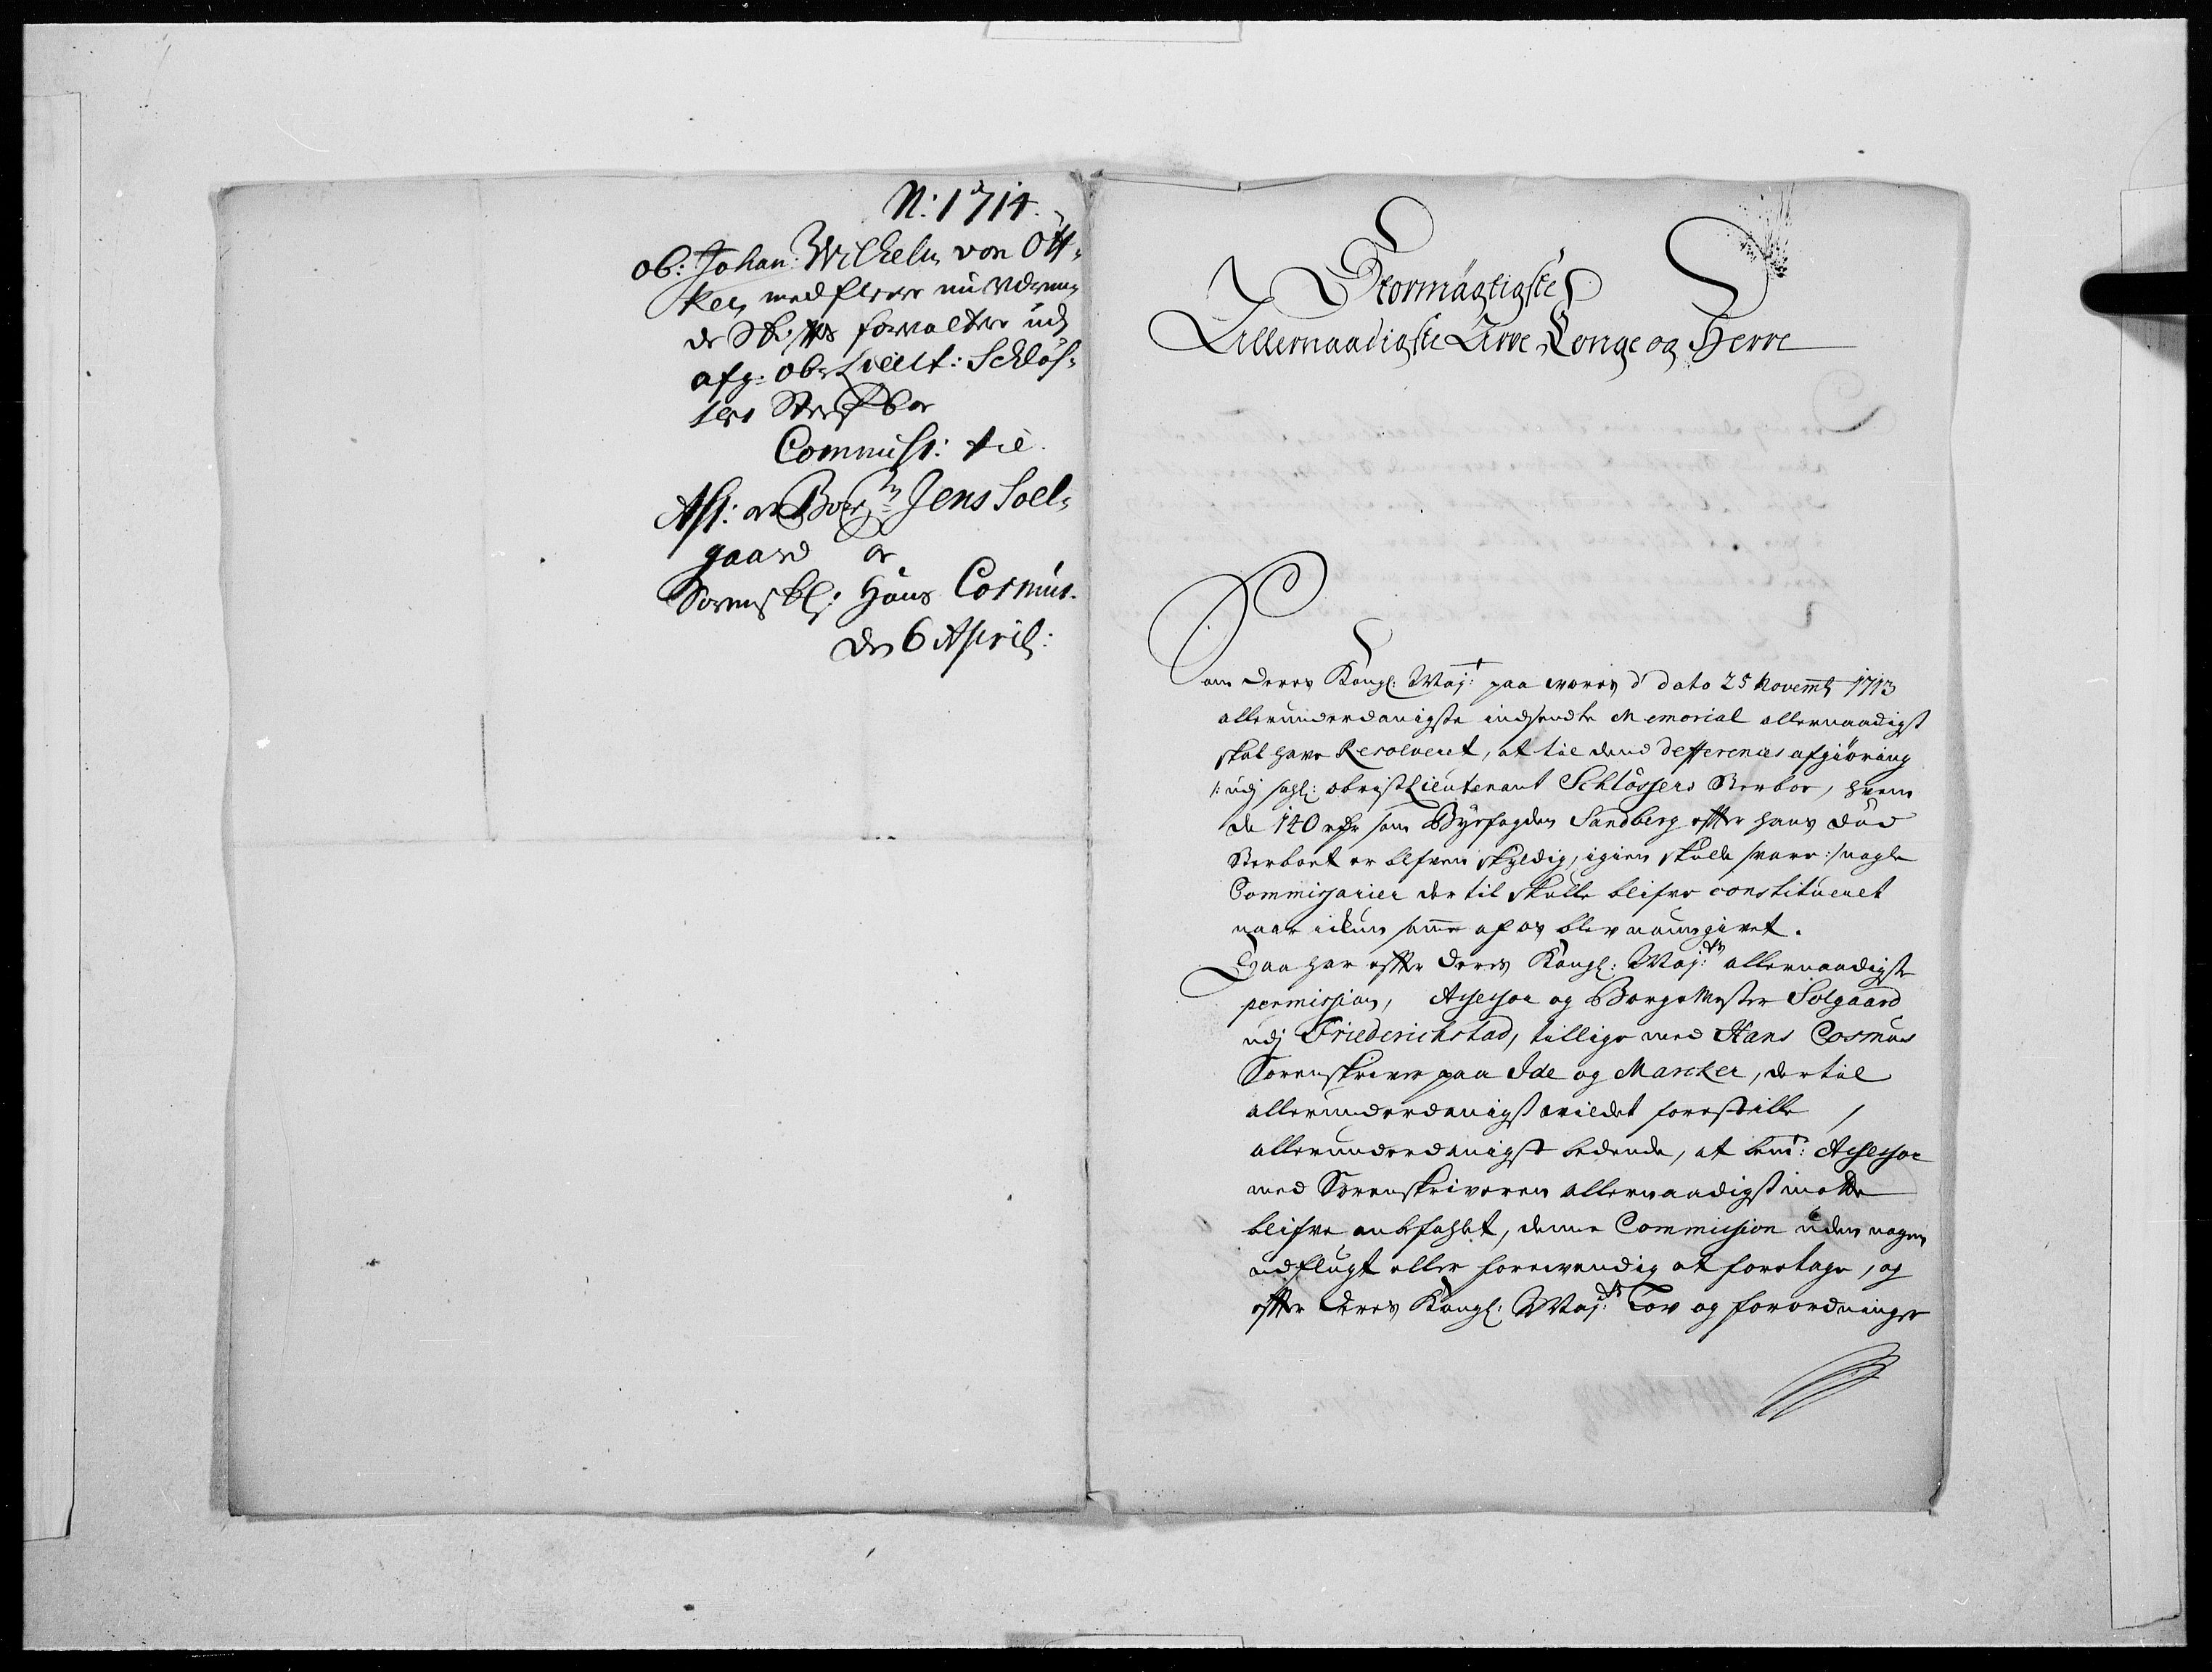 N: 1714.
ob: Johan: Wilhelm von Ött-
ken med fleere nu værren-
de Skiftes forvaltere udj
afg: Ob: Lieut: Schlös-
sers Sterfboe
Commiss: til
Ass: og Borgm Jens Soel-
gaard og
Sorenskr: Hans Cosmus.
den 6 April:
Stormägtigste
Allernaadigste Arve Konge og Herre
Som Deres Kongl: Maj:t paa vores d dato 25 Novemb 1713
allerunderdanigste indsendte Memorial allernaadigst
skal have Resolveret, at til dend defferences afgiöring
/: udj sahl: obrist Lieutenant Schlössers Sterboe, hvem
de 140 rdr som Byefogden Sandberg effter hans död
Sterboet er blefven skyldig, igien skulle svare :/ nogle
Commissarier der til skulle blifve constitueret
naar ickun samme af os blev naungivet.
Saa har effter Deres Kongl: Maj:ts allernaadigste
permission, Assessor og Borgemester Solgaard
udj Friederichstad, tillige med Hans Cosmus
Sorenskriver paa Ide og Marcker, der til
allerunderdanigst vildet forestille /
allerunderdanigst bedende, at bem:t Assessor
med Sorenskriveren allernaadigst motte
blifve anbefahlet, denne Commission uden nogen
udflugt eller forrevending at foretage, og
effter Deres Kongl: Maj:ts Lov og forordninger